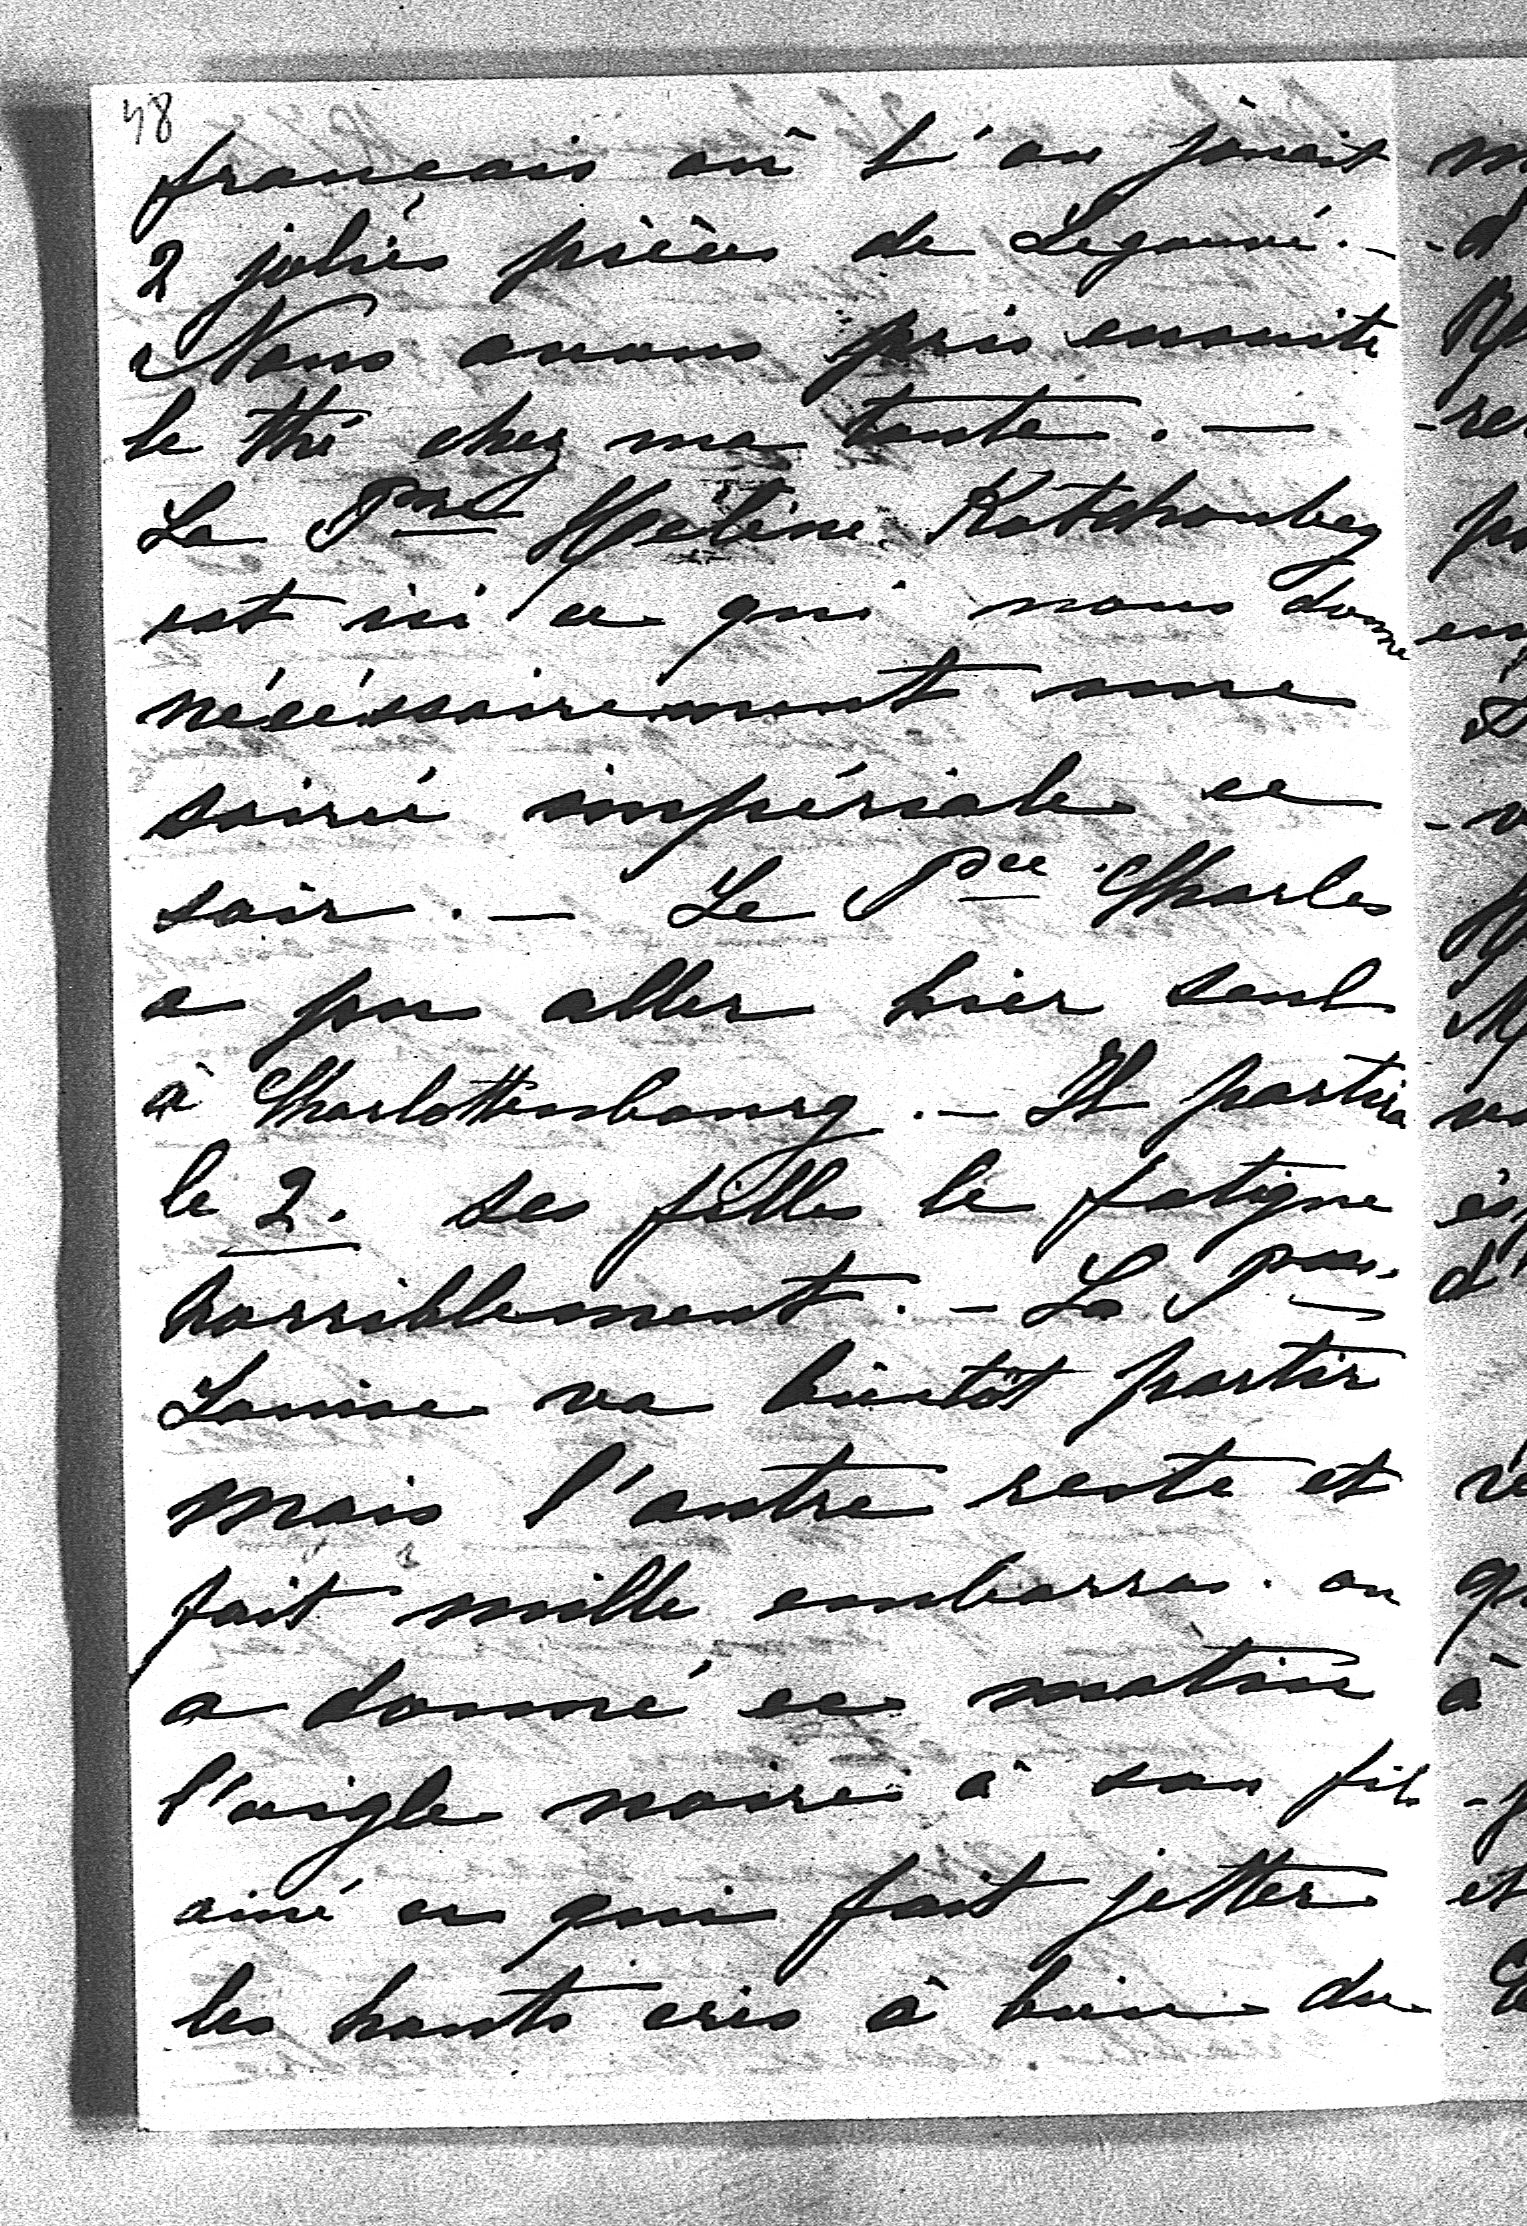 48
français où l'on jouait
2 jolies pièces de Legouvé. -
Nous avons pris ensuite
le thé chez ma tante. -
La Pme Hélène Kotchoubey
est ici ce qui nous donne
nécéssairement une
soirée impériale ce
soir. - Le Pce Charles
a pu aller hier seul
à Charlottenbourg. - Il partira
le 2. ses filles le fatigue
horriblement. - La Pss.
Louise va bientôt partir
mais l'autre reste et
fait mille embarras. on
a donné ce matin
l'aigle noire à son fils
ainé ce qui fait jetter
les hauts cris à bien du